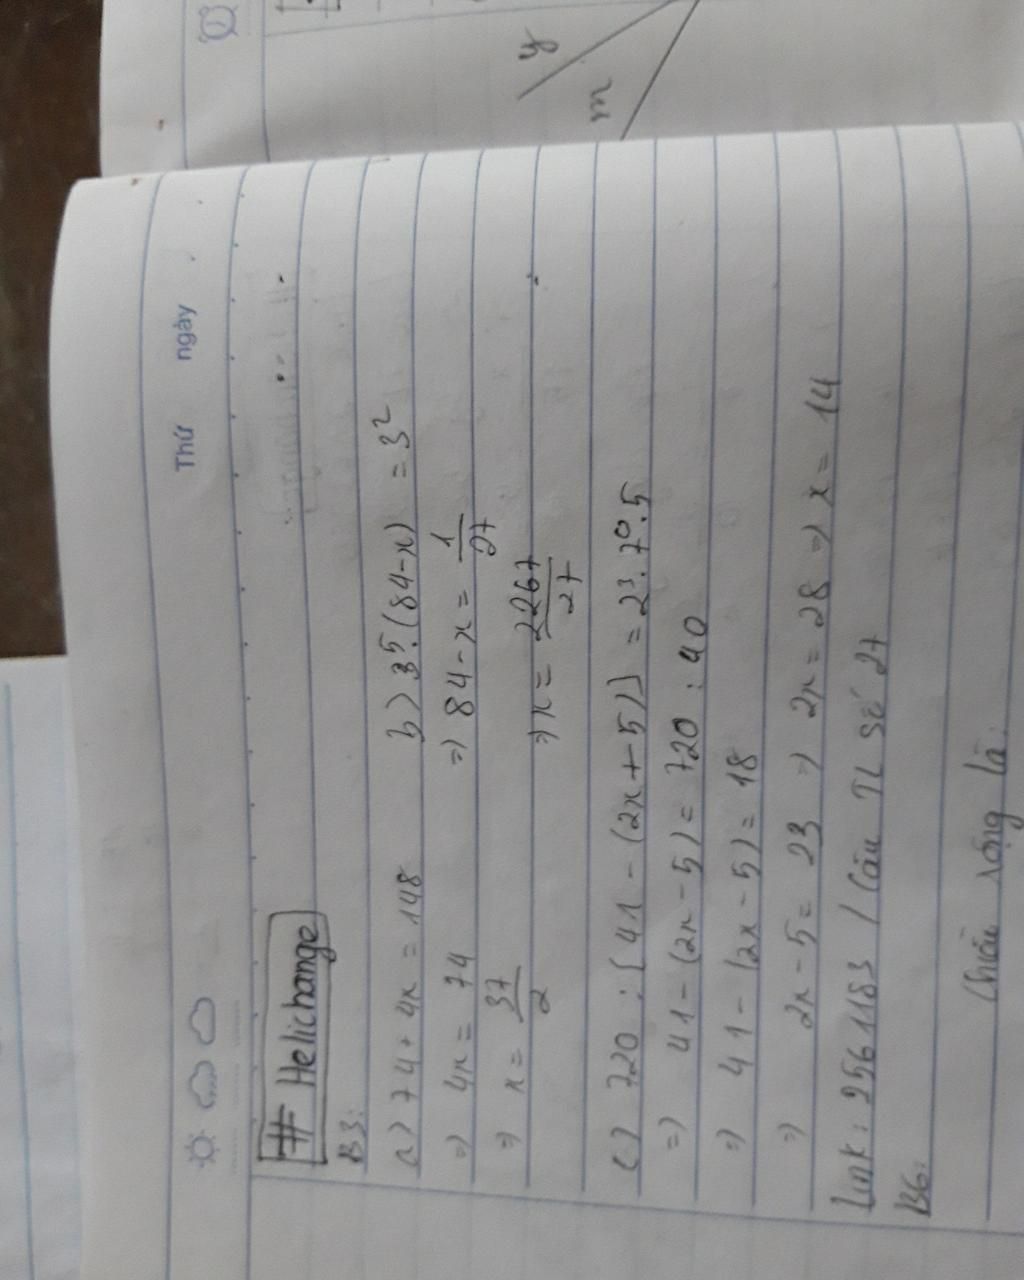 Thứ ngày
# Helichange
B3:
a) 74 + 4x = 148
b) 3⁵.(84-x) = 3²
=) 4x = 74
=) 84-x = 1/27
=) x = 37/2
=) x = 2267/27
c) 720 : [41 - (2x+5)] = 2³.7⁰.5
=) 41 - (2x-5) = 720 : 40
=) 41 - (2x-5) = 18
=) 2x-5 = 23 =) 2x = 28 =) x = 14
Link: 2561183 / Câu TL số 27
B6:
Chiều rộng là:
y
m